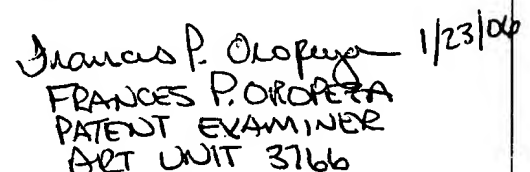 Frances P. Oropeza 1/23/06
FRANCES P. OROPEZA
PATENT EXAMINER
ART UNIT 3766